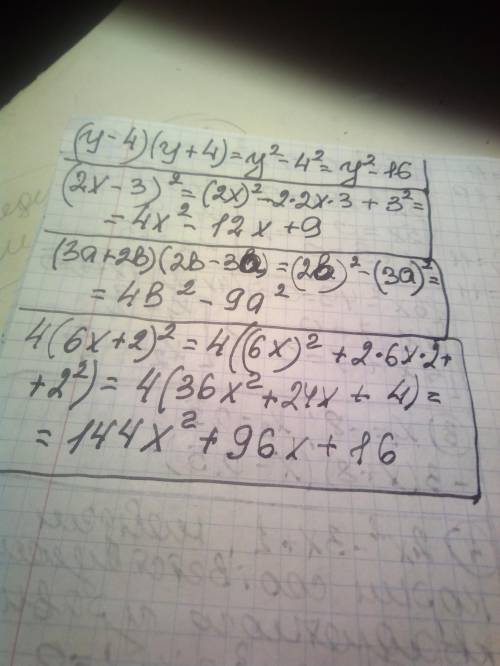 (y-4)(y+4)=y²-4²=y²-16
(2x-3)²=(2x)²-2·2x·3+3²=
=4x²-12x+9
(3a+2b)(2b-3a)=(2b)²-(3a)²=
=4b²-9a²
4(6x+2)²=4((6x)²+2·6x·2+
+2²)=4(36x²+24x+4)=
=144x²+96x+16